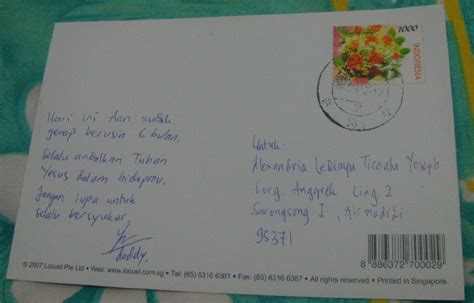 Hari ini dan sudah
genap berusia 6 bulan.
Selalu andalkan Tuhan
Yesus dalam hidupmu.
Jangan lupa untuk
selalu bersyukur.
daddy.
1000
INDONESIA
Untuk:
Alexandria Le
Ticoalu Yoseph
Lorg. Anggrek Ling. 2
Sarongsong I, Airmadidi
95371
© 2007 Locust Pte Ltd • Web: www.locust.com.sg • Tel: (65) 6316 6361 • Fax: (65) 6316 6367 • All rights reserved. Printed in Singapore.
8 886372 700029